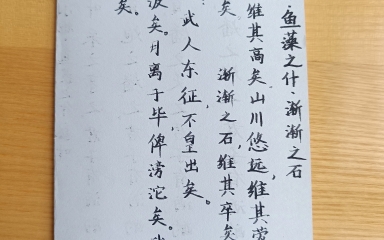 鱼藻之什·渐渐之石
维其高矣,山川悠远,维其劳
矣 渐渐之石,维其卒矣
武人东征,不皇出矣。
波矣。月离于毕,俾滂沱矣。
矣。